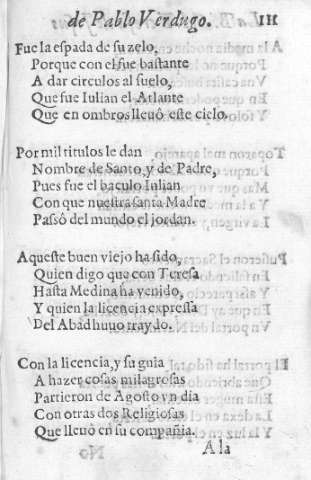 de Pablo Verdugo. III
Fue la espada de su zelo,
Porque con el fue bastante
A dar circulos al suelo,
Que fue Iulian el Atlante
Que en ombros lleuò este cielo.
Por mil titulos le dan
Nombre de Santo, y de Padre,
Pues fue el baculo Iulian
Con que nuestra santa Madre
Passò del mundo el jordan.
Aqueste buen viejo ha sido,
Quien digo que con Teresa
Hasta Medina ha venido,
Y quien la licencia expressa
Del Abad huuo traydo.
Con la licencia, y su guia
A hazer cosas milagrosas
Partieron de Agosto vn dia
Con otras dos Religiosas
Que lleuò en su compañia.
A la